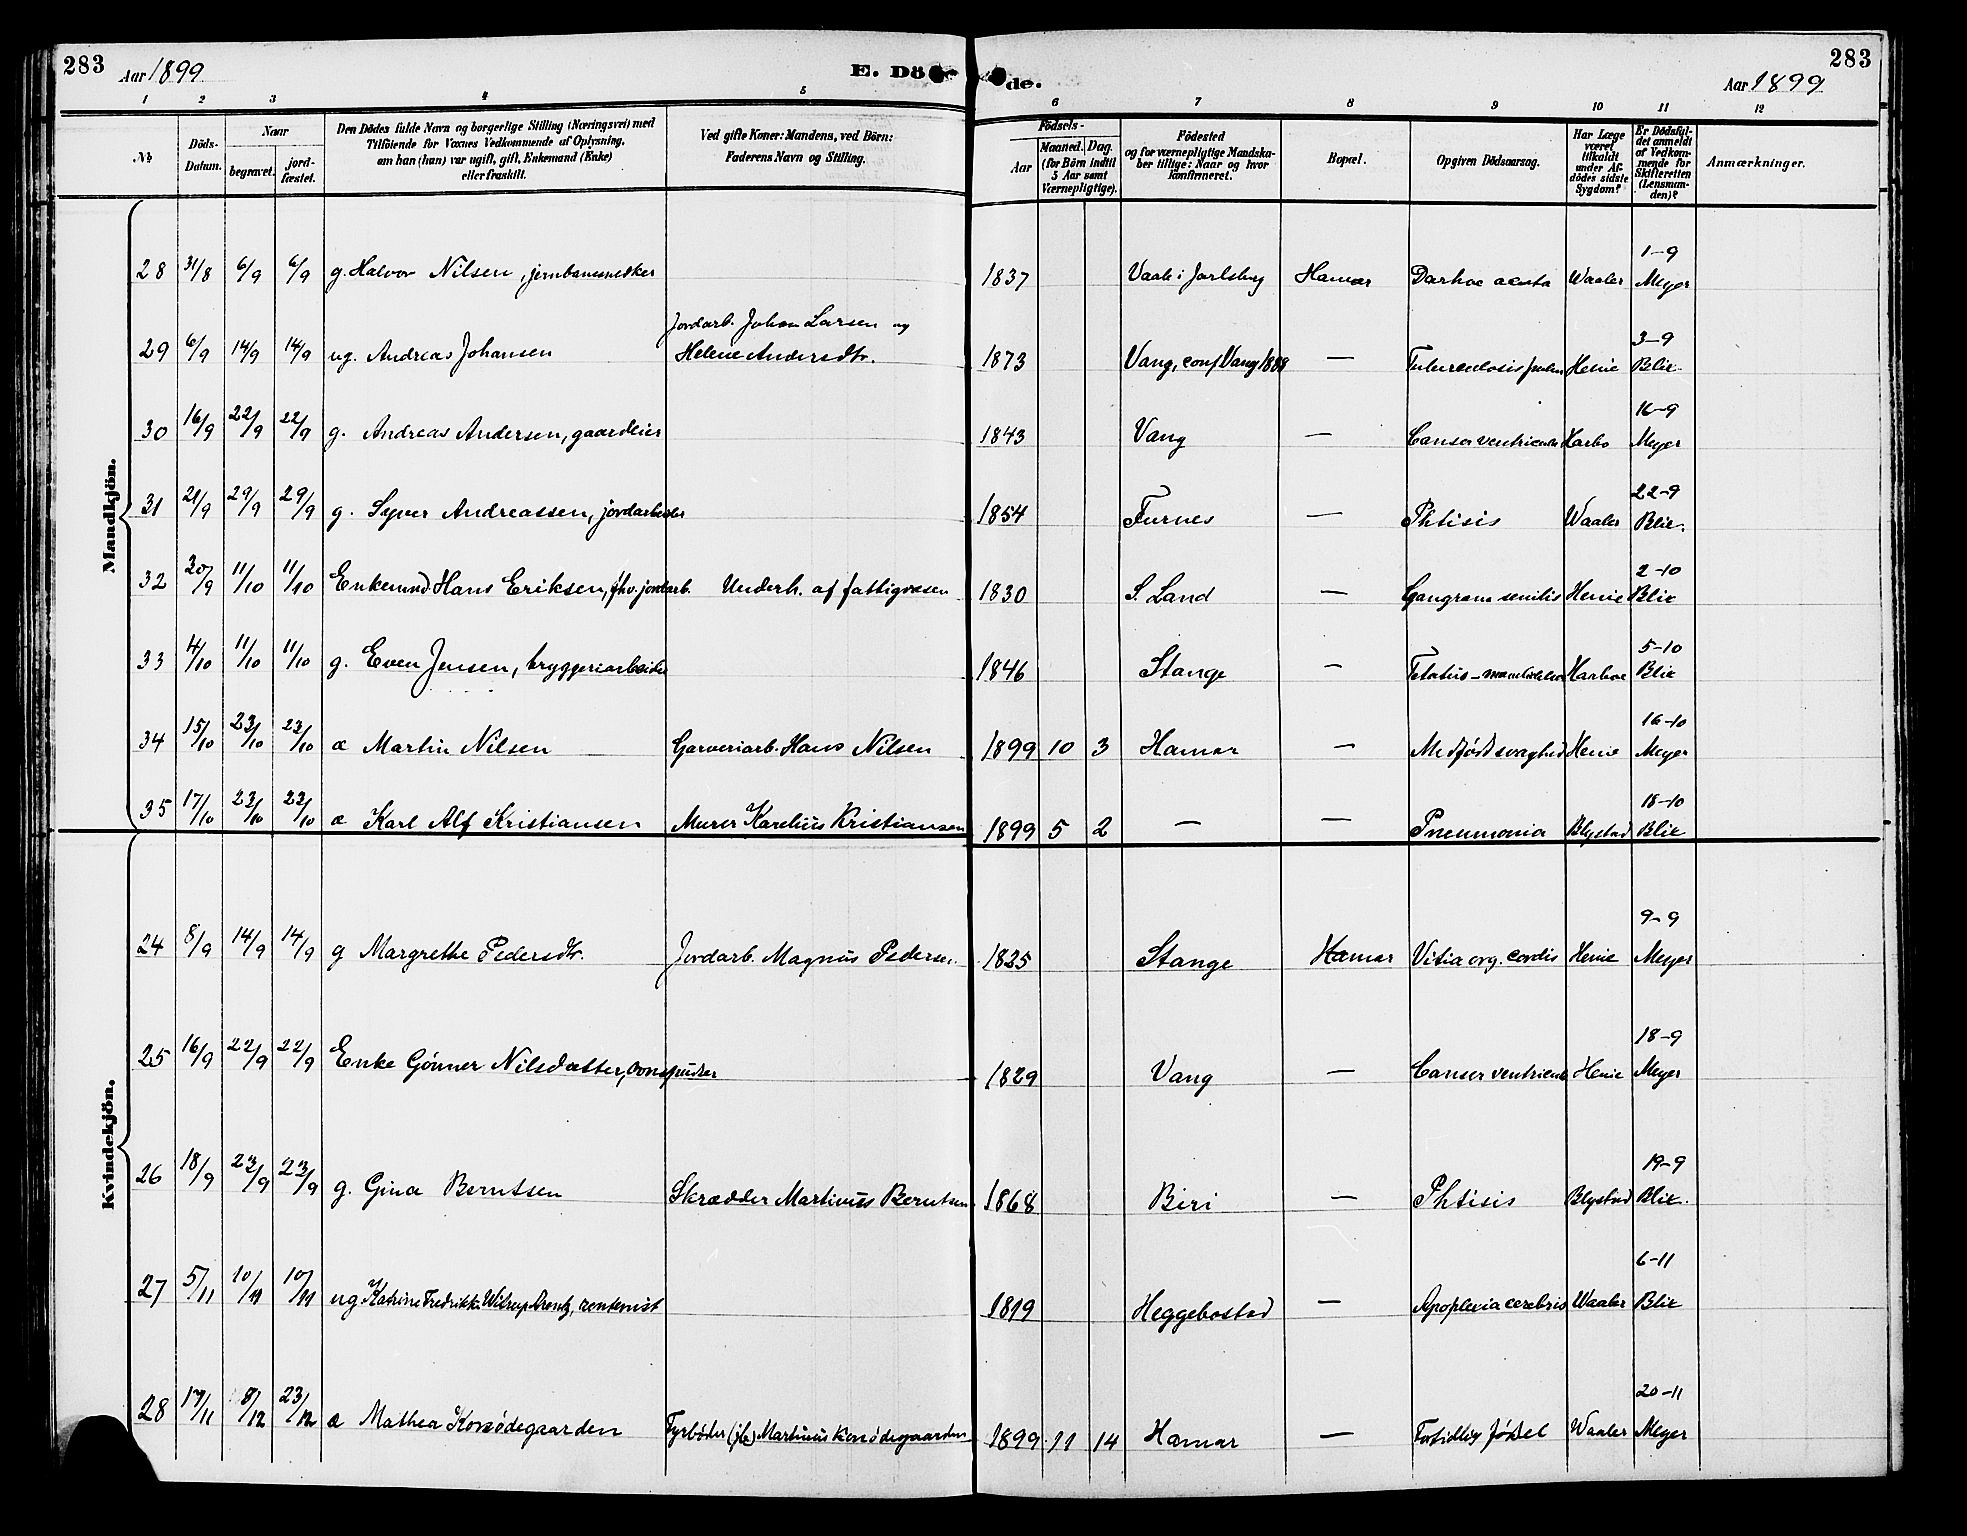 283 Aar 1899 E. Dö de. Aar 1899 283
1 2 3 4 5 6 7 8 9 10 11 12
No.
Döds-Datum.
Naar
begravet.
jordfæstet.
Den Dödes fulde Navn og borgerlige Stilling (Næringsvei) med
Tilföiende for Voxnes Vedkommende af Oplysning,
om han (hun) var ugift, gift, Enkemand (Enke)
eller fraskilt.
Ved gifte Koner: Mandens, ved Börn:
Faderens Navn og Stilling.
Födsels-
Aar
Maaned. Dag.
(for Börn indtil
5 Aar samt
Værnepligtige).
Födested
og for værnepligtige Mandska-
ber tillige: Naar og hvor
konfirmeret.
Bopæl.
Opgiven Dödsaarsag.
Har Læge
været
tilkaldt
under Af-
dödes sidste
Sygdom?
Er Dödsfal-
det anmeldt
af Vedkom-
mende for
Skifteretten
(Lensman-
den)?
Anmærkninger.
Mandkjön.
28 31/8 6/9 6/9 g. Halvor Nilsen, 1837 Vaale i Jarlsberg Hamar acuta Waaler 1-9 Meyer
29 6/9 14/9 14/9 ug. Andreas Johansen Jordarb. Johan Larsen og Helene Andersdtr. 1873 Vang, conf Vang 1888 — Tuberculosis pulm Heie 3-9 Blix
30 16/9 22/9 22/9 g. Andreas Andersen, gaardeier 1843 Vang — Canser ventriculi Harbo 16-9 Meyer
31 21/9 29/9 29/9 g. Syver Andreassen, jordarbeider 1854 Furnes — Phtisis Waaler 22-9 Blix.
32 30/9 11/10 11/10 Enkemnd Hans Eriksen, fhv. jordarb. Underh. af fattigvæsen 1830 S. Land — Gangræna senilis Heie 2-10 Blix
33 4/10 11/10 11/10 g. Even Jensen, bryggeriarbeider 1846 Stange — Harboe 5-10 Blix
34 15/10 23/10 23/10 æ Martin Nilsen Garveriarb. Hans Nilsen 1899 10 3 Hamar — Medfødt svaghed Heie 16-10 Meyer
35 17/10 23/10 23/10 æ Karl Alf Kristiansen Murer Karelius Kristiansen 1899 5 2 — — Pneumonia Blystad 18-10 Blix
Kvindekjön.
24 8/9 14/9 14/9 g Margrethe Pedersdtr. Jordarb. Magnus Pedersen. 1825 Stange Hamar Vitia org. cordis Heie 9-9 Meyer
25 16/9 22/9 22/9 Enke Gönner Nilsdatter, 1829 Vang — Canser ventriculi Heie 18-9 Meyer
26 18/9 23/9 23/9 g. Gina Berntsen Skrædder Martinius Berntsen 1868 Biri — Phtisis Blystad 19-9 Blix.
27 5/11 10/11 10/11 ug Katrine Fredrikke Arentz, rentenist 1819 Heggebostad — Apoplexia cerebris Waaler 6-11 Blix
28 17/11 8/12 23/12 æ Mathea Korsödegaarden Fyrbøder (jb) Martinius Korsödegaarden 1899 11 14 Hamar — Fortidlig fødsel Waaler 20-11 Meyer